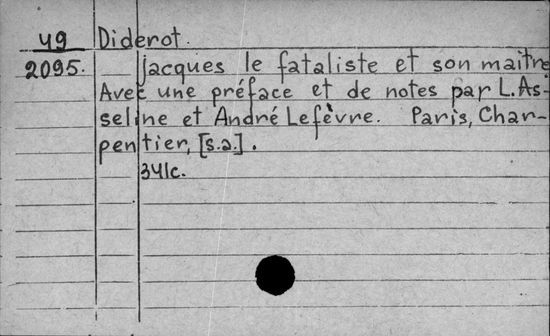 49 Diderot.
2095. Jacques le fataliste et son maître
Avec une préface et de notes par L. As-
seline et André Lefèvre. Paris, Char-
pentier, [s.a.].
341c.